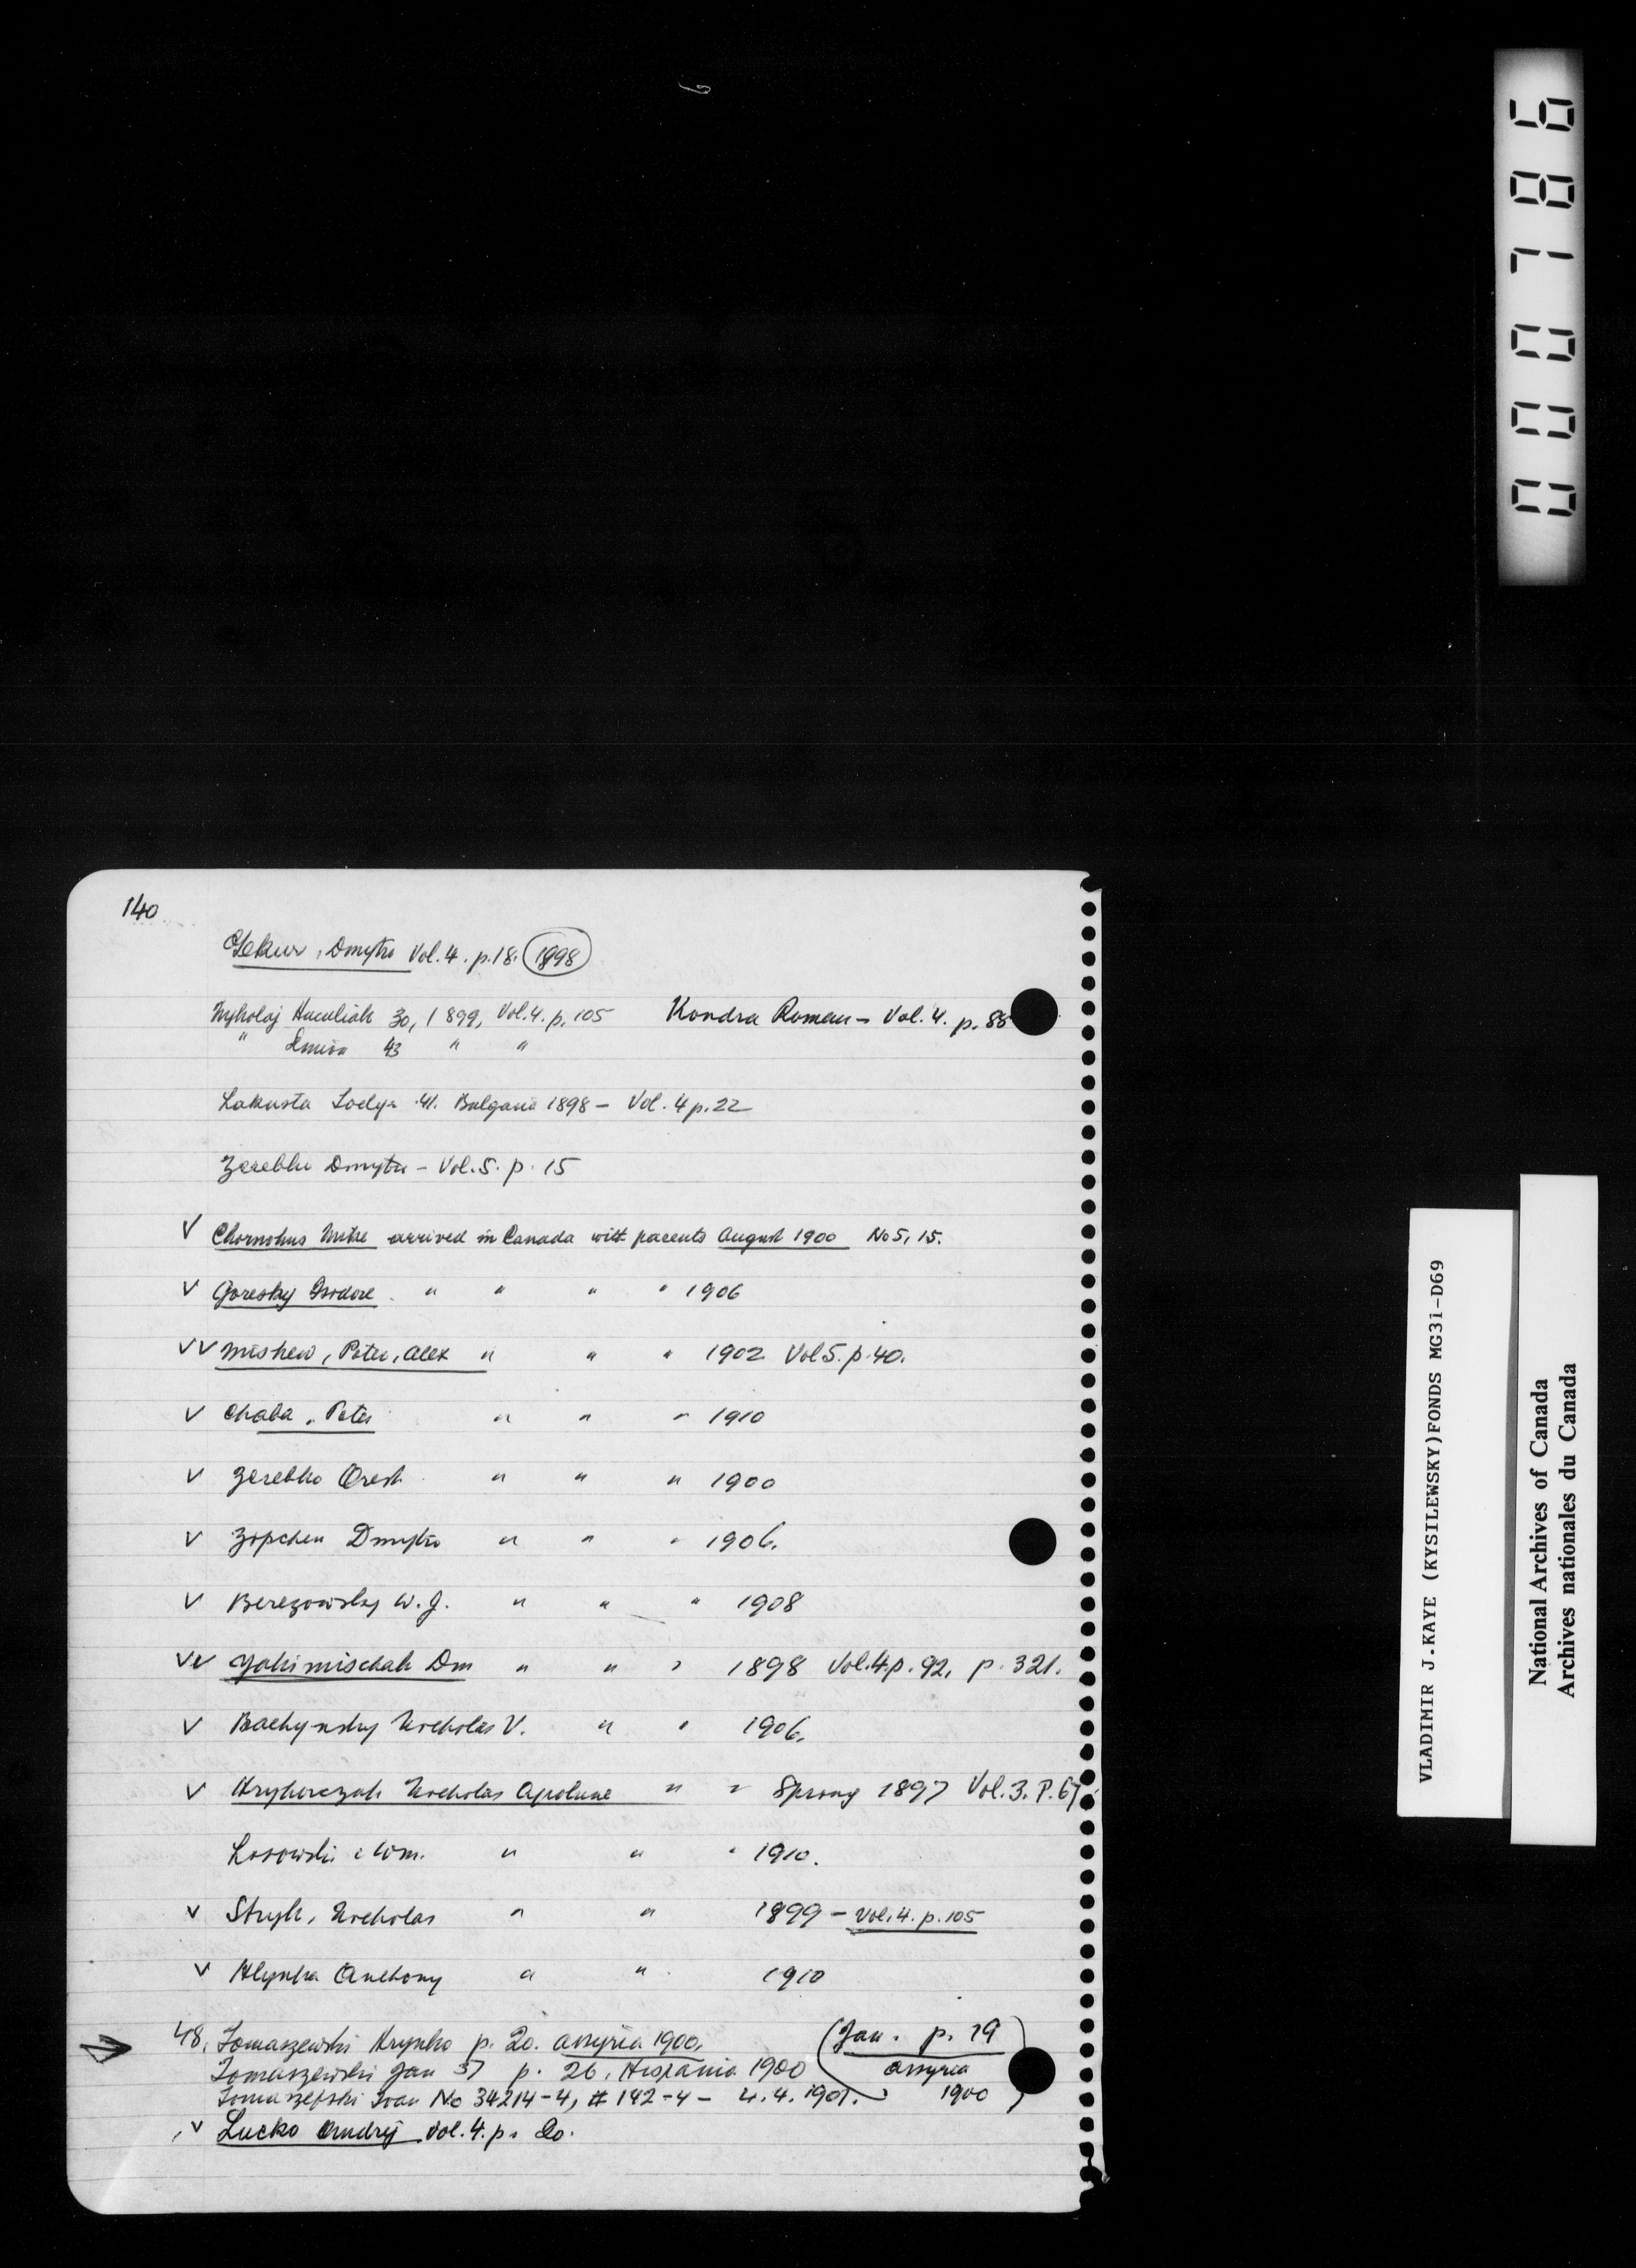 140
Dmytro Vol. 4. p. 18. 1898
Mykolaj Huculiak 30, 1899, Vol. 4. p. 105 Kondra Roman - Vol. 4. p. 85
" 43 " "
Lakusta 41. Bulgaria 1898 - Vol. 4 p. 22
Zerebko Dmytro - Vol. 5. p. 15
V Chornohus Mike arrived in Canada with parents August 1900 No 5, 15.
V Goresky Isodore " " " " 1906
VV Mishew, Peter, Alex " " " 1902 Vol 5. p. 40.
V Chaba, Peter " " " 1910
V Zerebko Orest " " " 1900
V Zopchen Dmytro " " " 1906.
V Berezowsky W. J. " " " 1908
VV Yakimischak Dm " " " 1898 Vol. 4 p. 92, p. 321.
V Bachynsky Nicholas V. " " 1906.
V Hryhorczak Nicholas Apolune " " Spring 1897 Vol. 3. P. 67
Losowski Wm. " " " 1910.
V Stryk, Nicholas " " 1899 - Vol. 4. p. 105
V Hlynka Anthony " " 1910
48. Tomaszewski Hrynko p. 20. Assyria 1900. (Jan. p. 19
Tomaszewski Jan 37 p. 26. Hispania 1900 Assyria
Tomaszefski Ivan No 34214-4, # 142-4 - 4. 4. 1901. 1900)
V Lucko Andrij Vol. 4. p. 20.
000786
VLADIMIR J.KAYE (KYSILEWSKY)FONDS MG31-D69
National Archives of Canada
Archives nationales du Canada